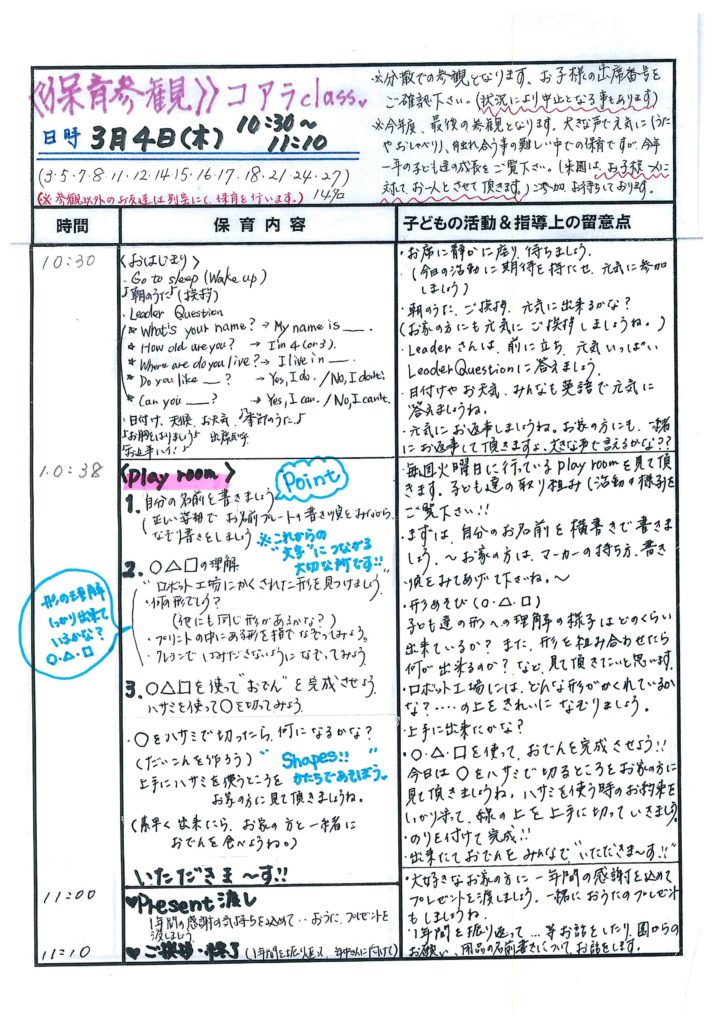 《保育参観》コアラclass♥
日時 3月4日(木) 10:30～11:10
(3・5・7・8・11・12・14・15・16・17・18・21・24・27)
(※参観以外のお友達は別室にて保育を行います。) 14名
※分散での参観となります。お子様の出席番号を
ご確認下さい。(状況により中止となる事もあります)
※今年度、最後の参観となります。大きな声で元気に(うた
やおしゃべり)、触れ合う事の難しい中での保育ですが、今年
一年の子ども達の成長をご覧下さい。(来園は、お子様一人に
対してお一人とさせて頂きます。)ご参加、お待ちしております。
時間 保育内容 子どもの活動＆指導上の留意点
10:30
〈おはじまり〉
・Go to sleep (Wake up)
♪朝のうた♪(挨拶)
・Leader Question
★What's your name? → My name is ＿.
★How old are you? → I'm 4 (or 3).
★Where are do you live? → I live in ＿.
★Do you like ＿? → Yes, I do. / No, I don't.
★Can you ＿? → Yes, I can. / No, I can't.
・日付け、天候、お天気、♪季節のうた♪
♪お返事ハイ!♪
・お席に静かに座り、待ちましょう。
(今日の活動に期待を持たせ、元気に参加
しましょう)
・朝のうた、ご挨拶、元気に出来るかな?
(お家の方にも元気にご挨拶しましょうね。)
・Leaderさんは、前に立ち、元気いっぱい
Leader Questionに答えましょう。
・日付けやお天気、みんなも英語で元気に
答えましょうね。
・元気にお返事しましょうね。お家の方にも、一緒
にお返事して頂きますよ、大きな声で言えるかな??
10:38
〈play room〉
Point
1. 自分の名前を書きましょう
(正しい姿勢で お名前プレートの書き順とみながら、
なぞり書きをしましょう
※これからの
"文字"につながる
大切な所です!!
2. ○△□の理解
"ロボット工場にかくされた形を見つけましょう
・何の形でしょう?
(他にも同じ形があるかな?)
・プリントの中にある形を指でなぞってみよう。
・クレヨンではみださないようになぞってみよう
形の理解
しっかり出来て
いるかな?
○・△・□
3. ○△□を使って"おでん"を完成させよう。
ハサミを使って○を切ってみよう。
・○をハサミで切ったら、何になるかな?
(だいこんを作ろう)
"Shapes!!"
かたちであそぼう。
上手にハサミを使うところを
お家の方に見て頂きましょうね。
(素早く出来たら、お家の方と一緒に
おでんを食べようね。)
いただきま～す!!
・毎週火曜日に行っているplay roomを見て頂
きます。子ども達の取り組み(活動の様子を
ご覧下さい!!
・まずは、自分のお名前を横書きで書きま
しょう。～お家の方は、マーカーの持ち方、書き
順をみてあげて下さいね。～
・形あそび(○・△・□)
子ども達の形への理解等の様子はどのくらい
出来ているか? また、形を組み合わせたら
何が出来るのか? など、見て頂きたいと思います。
・ロボット工場には、どんな形がかくれているか
な?・・・・の上をきれいになぞりましょう。
・上手に出来たかな?
・○・△・□を使って、おでんを完成させよう!!
今日は○をハサミで切るところをお家の方に
見て頂きましょうね。ハサミを使う時のお約束を
しっかり守って、線の上を上手に切っていきましょう。
・のりを付けて完成!!
・出来たておでんをみんなで"いただきま～す!!"
11:00
♥Present渡し
1年間の感謝の気持ちを込めて・・おうちに、プレゼントを
渡しましょう。
11:10
♥ご挨拶・終了(1年間を振り返って、年中さんに向けて)
・大好きなお家の方に一年間の感謝を込めて
プレゼントを渡しましょう。一緒におうたのプレゼント
もしましょうね。
・1年間を振り返って...等お話をしたり、園からの
お願い、用品の名前書きについて、お話をします。